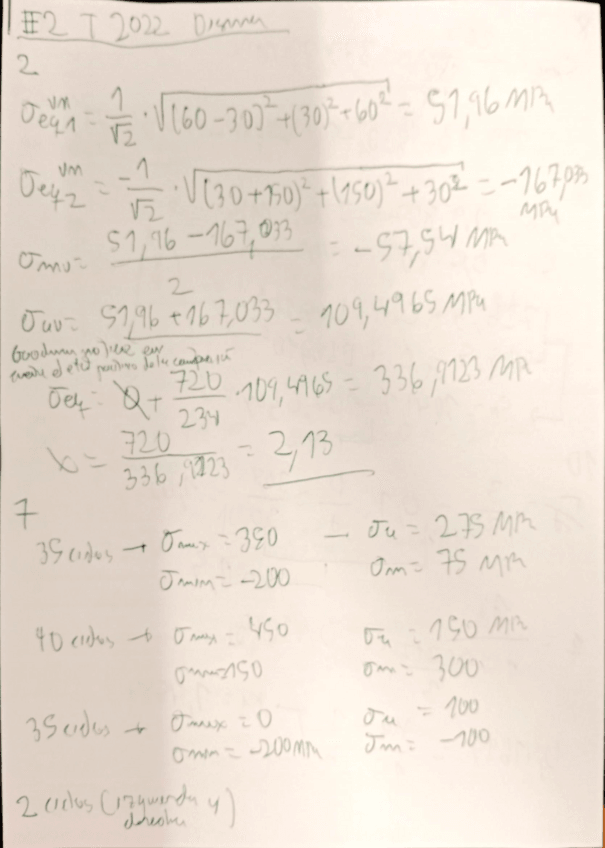 #2 T 2022 Disman
2
σeq1^VM = 1/√2 · √((60-30)²+(30)²+60²) = 51,96 MPa
σeq2^VM = -1/√2 · √((30+150)²+(150)²+30²) = -167,033 MPa
σmv = (51,96 - 167,033)/2 = -57,54 MPa
σav = (51,96 + 167,033)/2 = 109,4965 MPa
Goodman no tiene en
cuenta el efecto positivo de la compresión
σeq = 0 + 720/234 · 109,4965 = 336,9123 MPa
X = 720/336,9123 = 2,13
7
35 ciclos → σmax = 350 - σa = 275 MPa
σmin = -200 σm = 75 MPa
40 ciclos → σmax = 450 σa = 150 MPa
σmin = 150 σm = 300
35 ciclos → σmax = 0 σa = 100
σmin = -200 MPa σm = -100
2 ciclos (izquierda y
derecha)